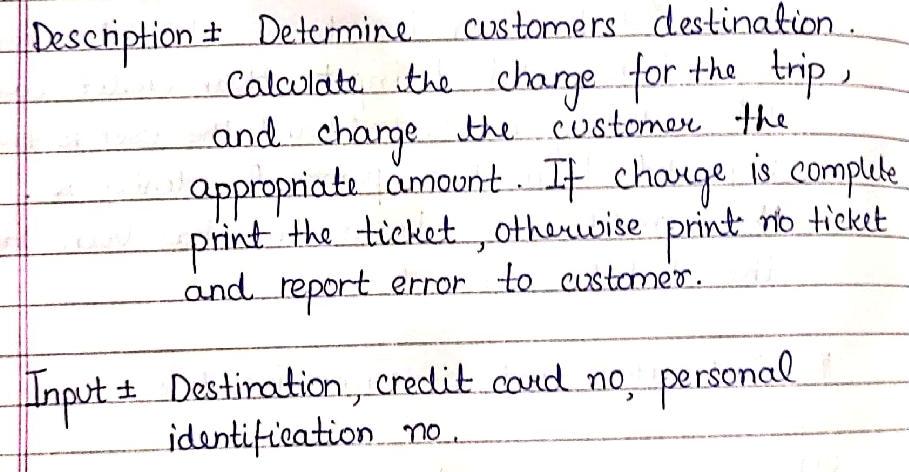 Description :- Determine customers destination.
Calculate the charge for the trip,
and charge the customer the
appropriate amount. If charge is complete
print the ticket, otherwise print no ticket
and report error to customer.
Input :- Destination, credit card no, personal
identification no.